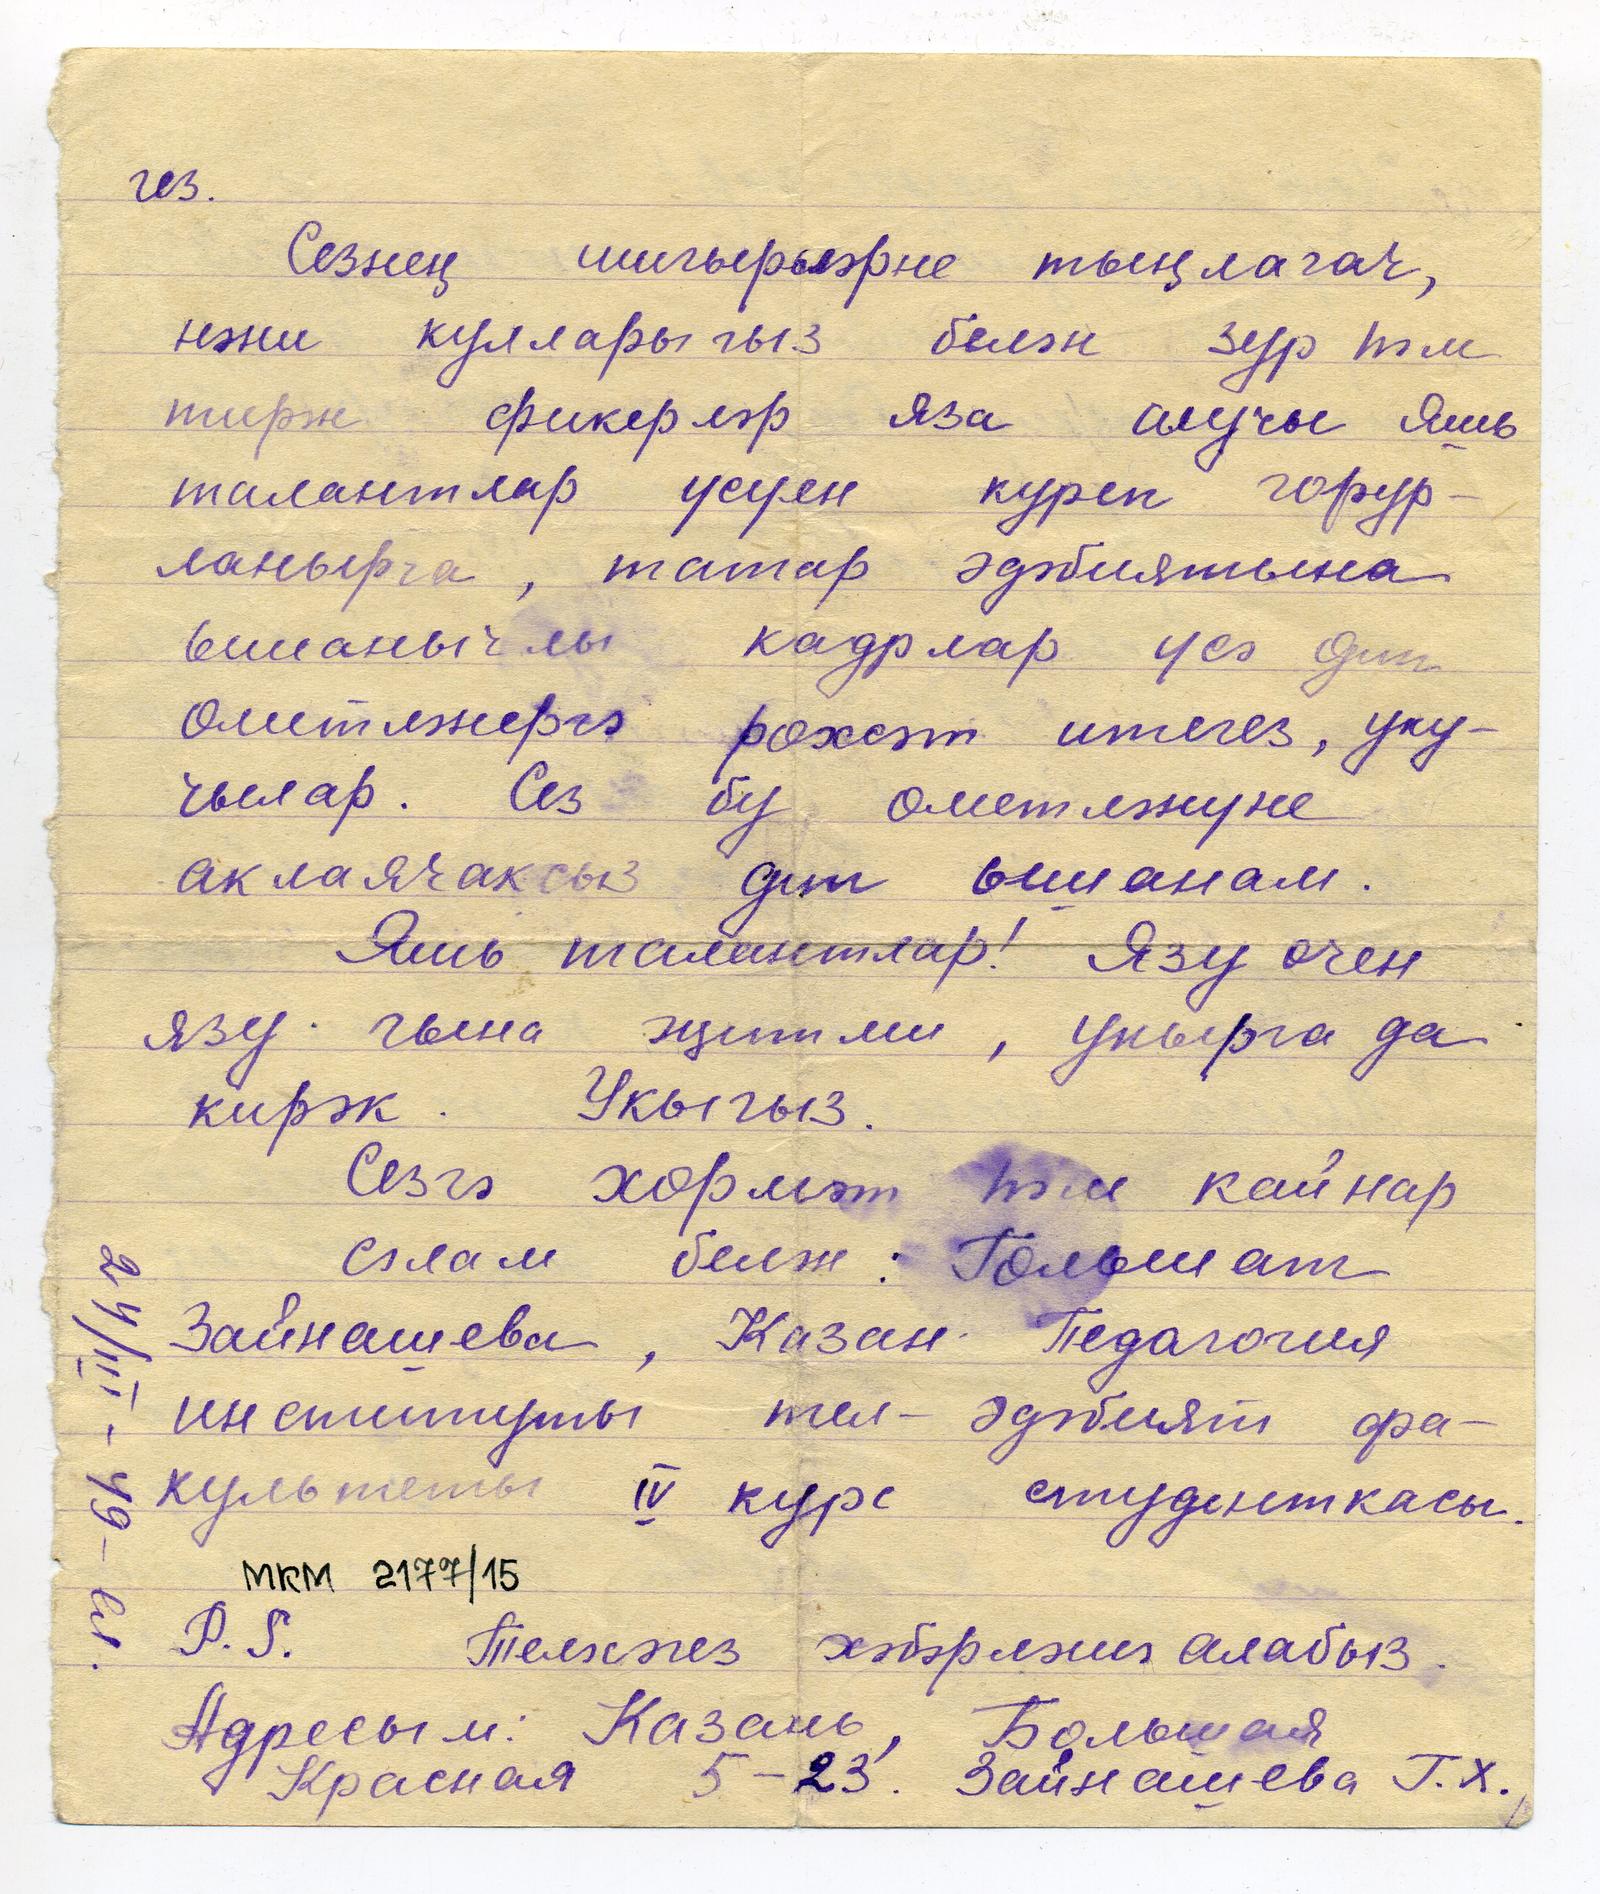 гез.
Сезнең шигырьләрне тыңлагач,
нәни кулларыгыз белән зур һәм
тирән фикерләр яза алучы яшь
талантлар үсүен күреп горур-
ланырга, татар әдәбиятына
ышанычлы кадрлар үсә дип
өметләнергә рөхсәт итегез, уку-
чылар. Сез бу өметләнүне
аклаячаксыз дип ышанам.
Яшь талантлар! Язу өчен
язу гына җитми, укырга да
кирәк. Укыгыз.
Сезгә хөрмәт һәм кайнар
сәлам белән: Гөлшат
Зайнашева, Казан Педагогия
институты тел-әдәбият фа-
культеты IV курс студенткасы.
24/III-49-ел.
МКМ 2177/15
P.S. хәбәрләшә алабыз.
Адресым: Казань, Большая
Красная 5-23. Зайнашева Г.Х.